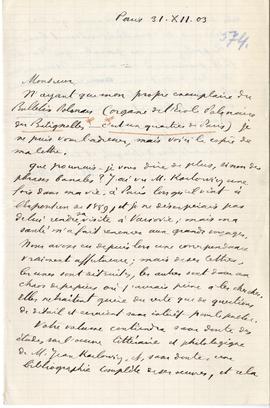 Paris 31.XII.03
574.
Monsieur
N'ayant que mon propre exemplaire du
Bulletin Polonais (organe de l'École Polonaise
des Batignolles, c'est un quartier de Paris) je
ne puis vous l'adresser, mais voici la copie de
ma lettre.
Que pourrais-je vous dire de plus, sinon des
phrases banales? J'ai vu M. Karlowicz une
fois dans ma vie, à Paris lorsqu'il vint à
l'Exposition de 1889, et je ne désespérais pas
de lui rendre visite à Varsovie; mais ma
santé m'a fait renoncer aux grands voyages.
Nous avons eu depuis lors une correspondance
vraiment affectueuse; mais de ses lettres,
les unes sont détruites, les autres sont dans un
chaos de papiers où j'aurais peine à les chercher.
elles ne traitaient guère du reste que de questions
de détail et seraient sans intérêt pour le public.
Votre volume contiendra sans doute des
études sur l'œuvre littéraire et philologique
de M. Jean Karlowicz et, sans doute, une
bibliographie complète de ses œuvres, et cela